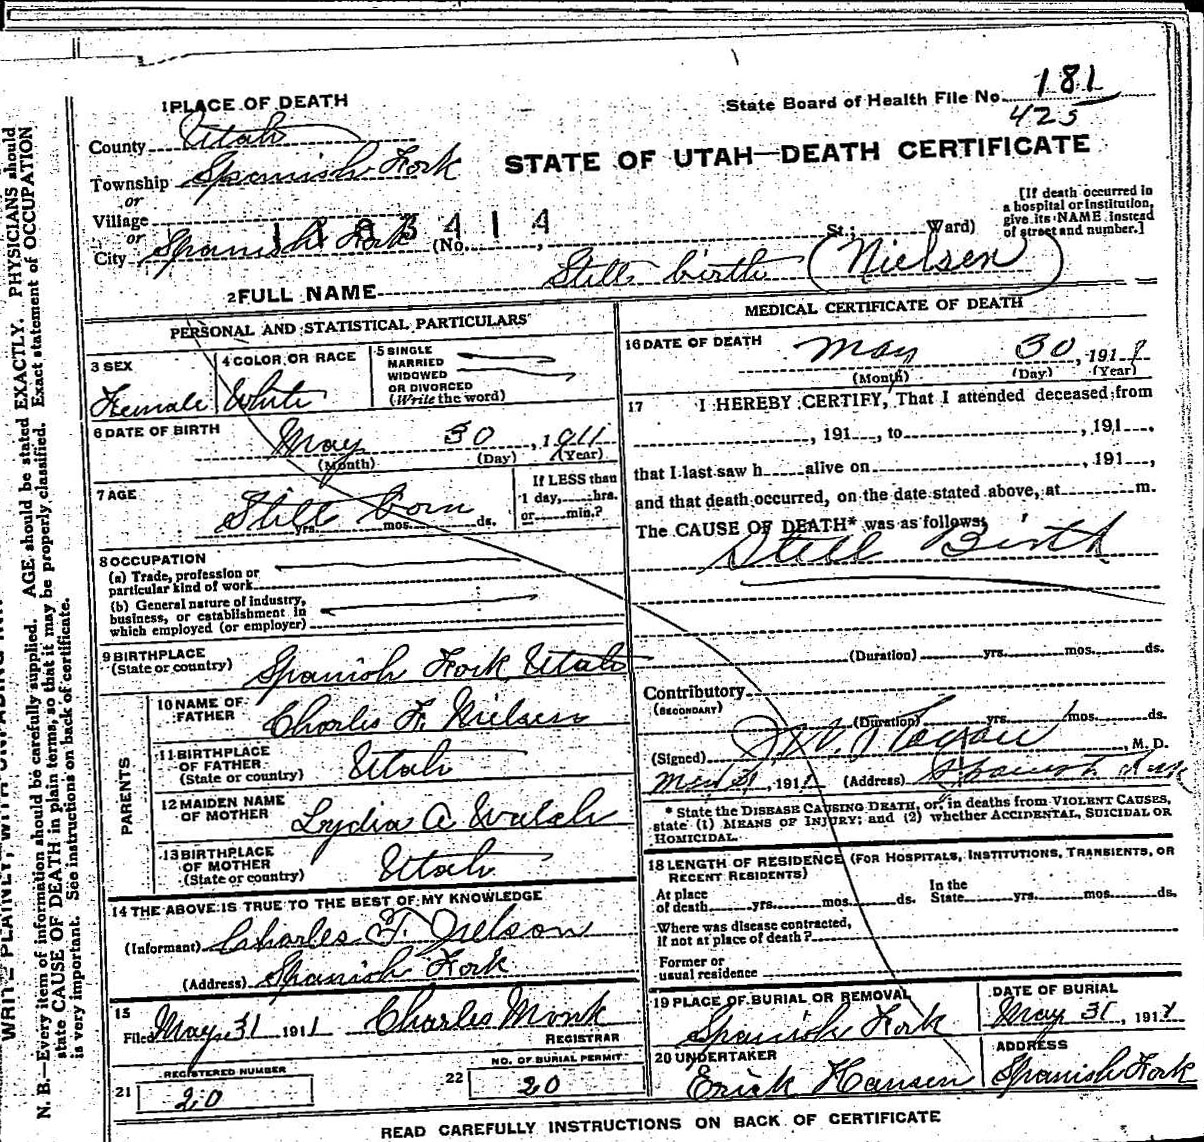 1 PLACE OF DEATH
State Board of Health File No. 181
425
County Utah
STATE OF UTAH—DEATH CERTIFICATE
Township Spanish Fork
or
Village
or
City Spanish Fork (No. St.; Ward)
[If death occurred in
a hospital or institution,
give its NAME instead
of street and number.]
2 FULL NAME Still birth (Nielsen)
PERSONAL AND STATISTICAL PARTICULARS
3 SEX
Female
4 COLOR OR RACE
White
5 SINGLE
MARRIED
WIDOWED
OR DIVORCED
(Write the word)
6 DATE OF BIRTH
May 30, 1911
(Month) (Day) (Year)
7 AGE
Still born
yrs. mos. ds.
If LESS than
1 day, hrs.
or min.?
8 OCCUPATION
(a) Trade, profession or
particular kind of work
(b) General nature of industry,
business, or establishment in
which employed (or employer)
9 BIRTHPLACE
(State or country) Spanish Fork Utah
PARENTS
10 NAME OF
FATHER Charles F. Nielsen
11 BIRTHPLACE
OF FATHER
(State or country) Utah
12 MAIDEN NAME
OF MOTHER Lydia A
13 BIRTHPLACE
OF MOTHER
(State or country) Utah
14 THE ABOVE IS TRUE TO THE BEST OF MY KNOWLEDGE
(Informant) Charles F. Nielson
(Address) Spanish Fork
15
Filed May 31 1911 Charles Monk
REGISTRAR
21 REGISTERED NUMBER
20
22 NO. OF BURIAL PERMIT
20
MEDICAL CERTIFICATE OF DEATH
16 DATE OF DEATH May 30, 1911
(Month) (Day) (Year)
17 I HEREBY CERTIFY, That I attended deceased from
, 191 , to , 191 ,
that I last saw h alive on , 191 ,
and that death occurred, on the date stated above, at m.
The CAUSE OF DEATH* was as follows:
Still Birth
(Duration) yrs. mos. ds.
Contributory
(SECONDARY)
(Duration) yrs. mos. ds.
(Signed) J.W. , M. D.
31, 1911 (Address) Spanish Fork
* State the DISEASE CAUSING DEATH, or, in deaths from VIOLENT CAUSES,
state (1) MEANS OF INJURY; and (2) whether ACCIDENTAL, SUICIDAL OR
HOMICIDAL.
18 LENGTH OF RESIDENCE (FOR HOSPITALS, INSTITUTIONS, TRANSIENTS, OR
RECENT RESIDENTS)
At place
of death yrs. mos. ds.
In the
State yrs. mos. ds.
Where was disease contracted,
if not at place of death?
Former or
usual residence
19 PLACE OF BURIAL OR REMOVAL
Spanish Fork
DATE OF BURIAL
May 31, 1911
20 UNDERTAKER
Erick Hansen
ADDRESS
Spanish Fork
READ CAREFULLY INSTRUCTIONS ON BACK OF CERTIFICATE
N. B.—Every item of information should be carefully supplied. AGE should be stated EXACTLY. PHYSICIANS should
state CAUSE OF DEATH in plain terms, so that it may be properly classified. Exact statement of OCCUPATION
is very important. See instructions on back of certificate.